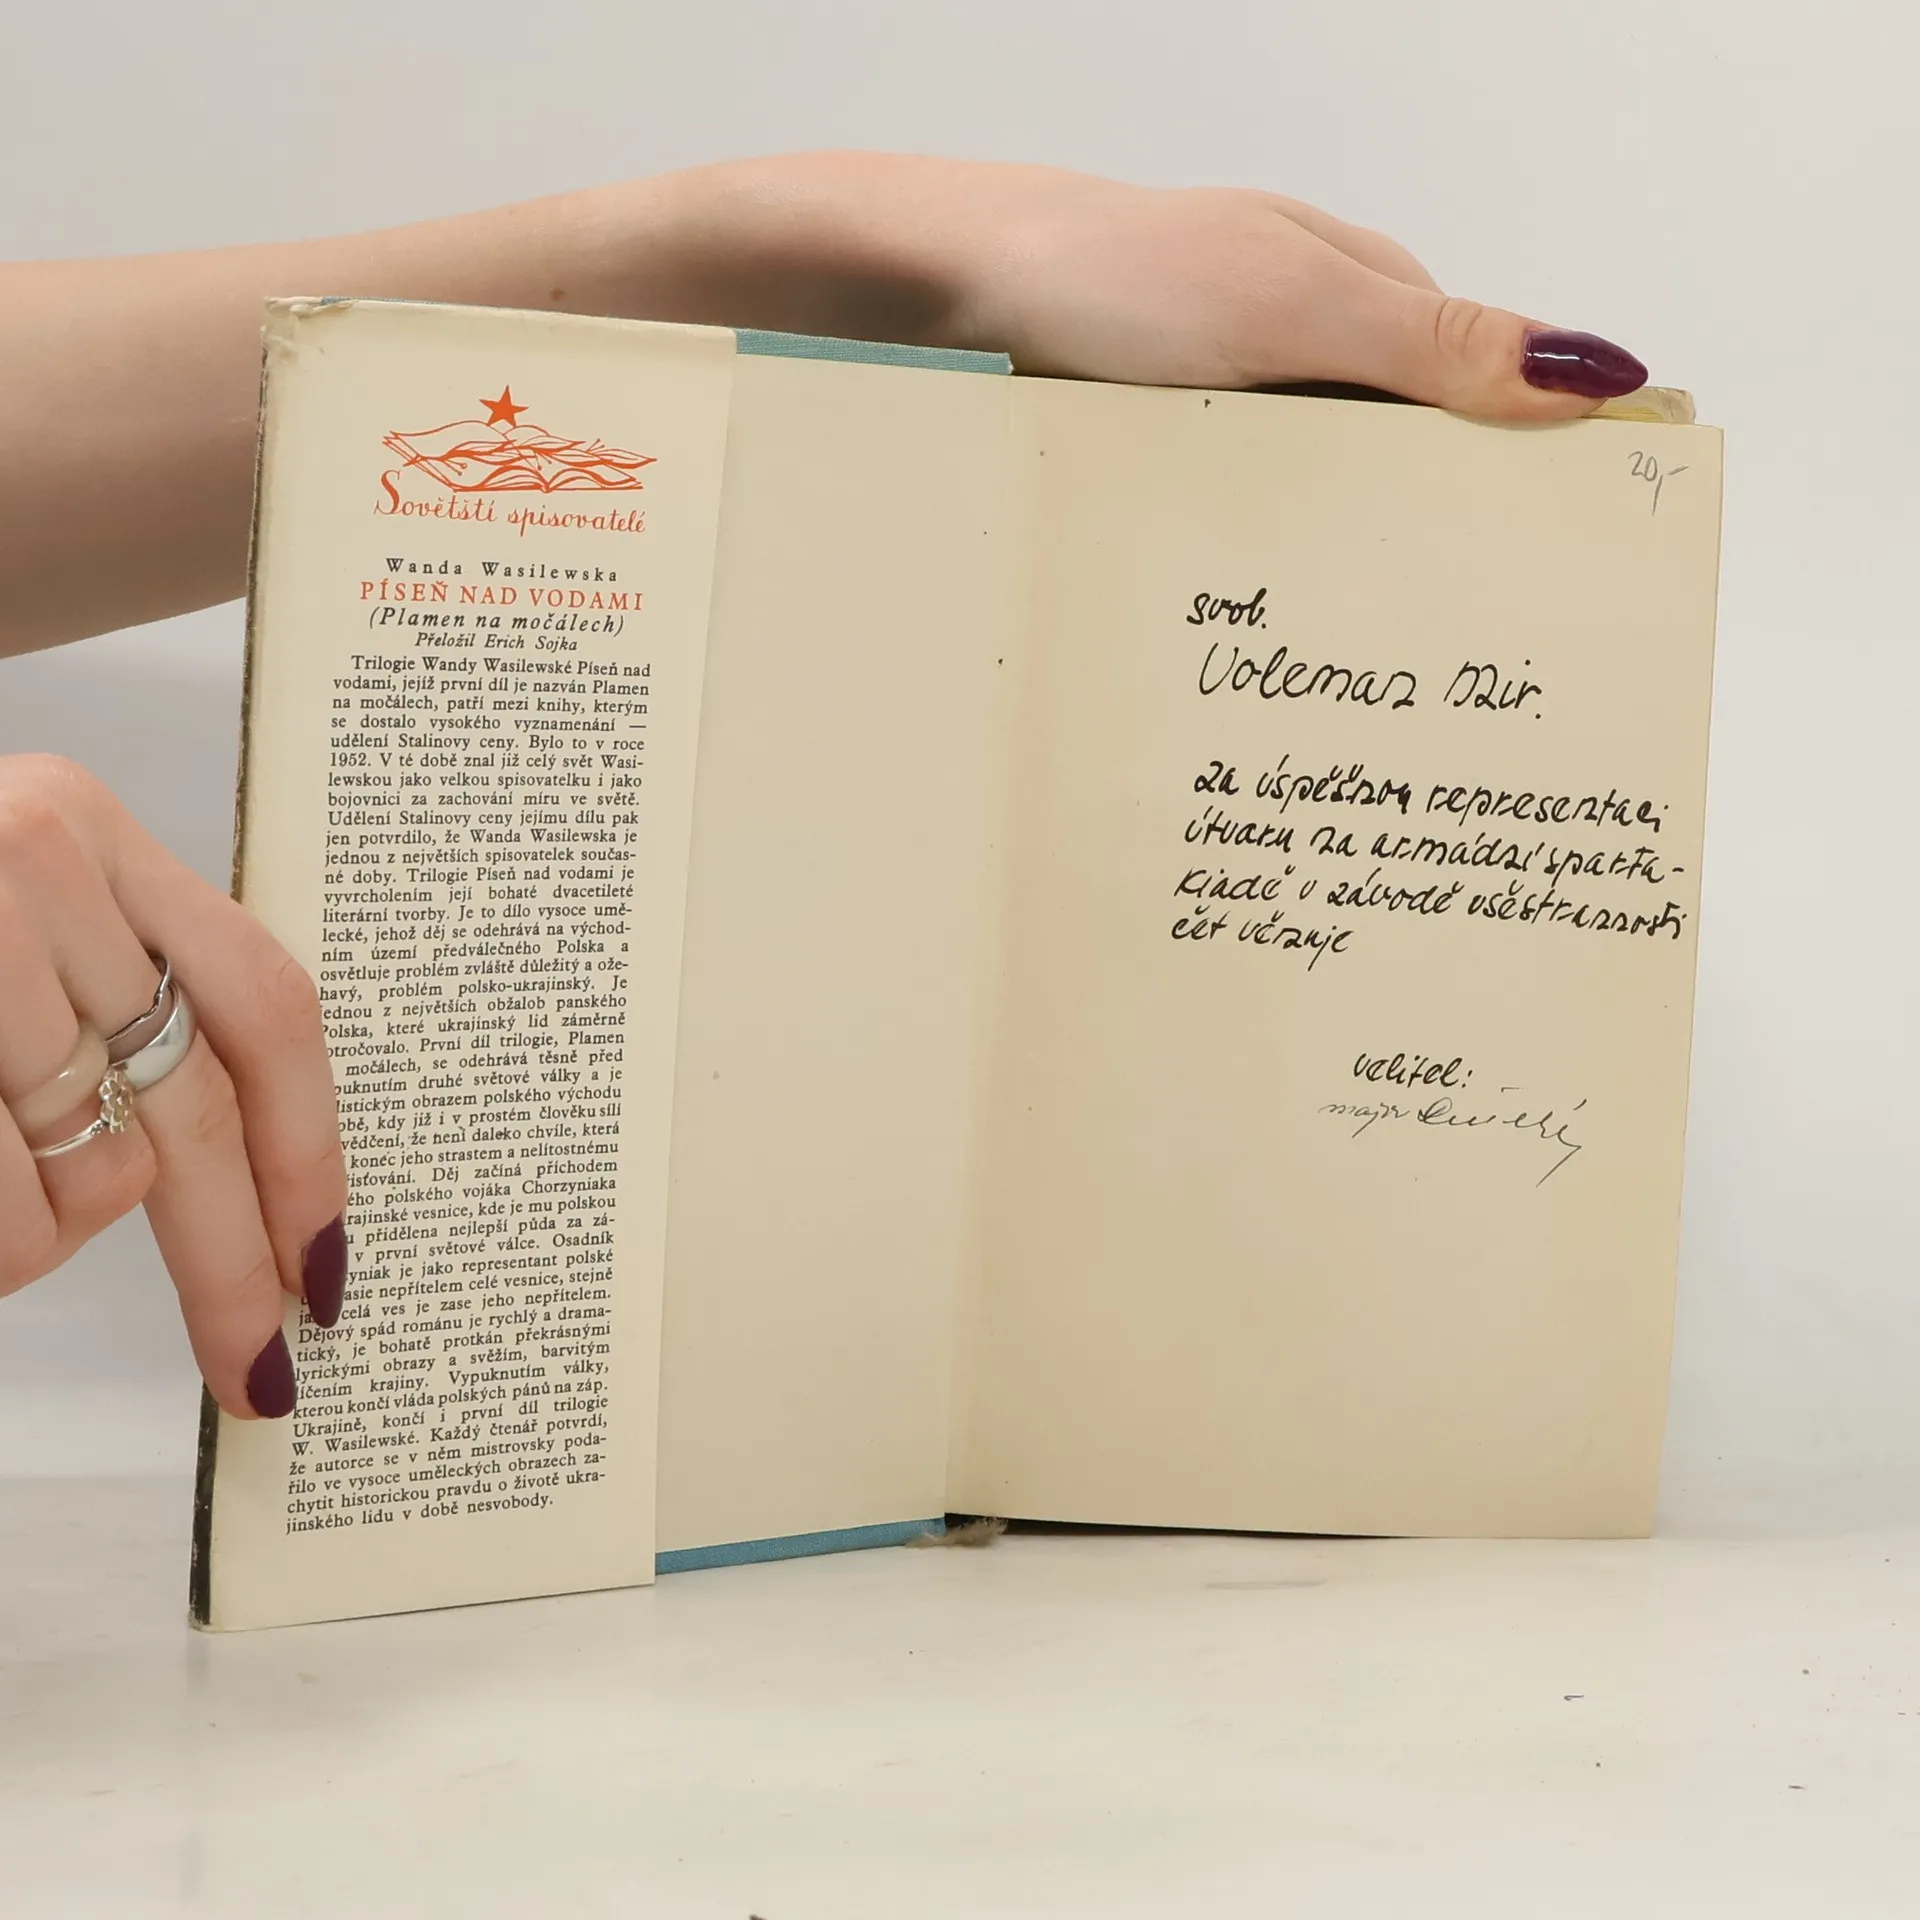 Sovětští spisovatelé
Wanda Wasilewska
PÍSEŇ NAD VODAMI
(Plamen na močálech)
Přeložil Erich Sojka
Trilogie Wandy Wasilewské Píseň nad
vodami, jejíž první díl je nazván Plamen
na močálech, patří mezi knihy, kterým
se dostalo vysokého vyznamenání —
udělení Stalinovy ceny. Bylo to v roce
1952. V té době znal již celý svět Wasi-
lewskou jako velkou spisovatelku i jako
bojovnici za zachování míru ve světě.
Udělení Stalinovy ceny jejímu dílu pak
jen potvrdilo, že Wanda Wasilewska je
jednou z největších spisovatelek součas-
né doby. Trilogie Píseň nad vodami je
vyvrcholením její bohaté dvacetileté
literární tvorby. Je to dílo vysoce umě-
lecké, jehož děj se odehrává na východ-
ním území předválečného Polska a
osvětluje problém zvláště důležitý a ože-
havý, problém polsko-ukrajinský. Je
jednou z největších obžalob panského
Polska, které ukrajinský lid záměrně
otročovalo. První díl trilogie, Plamen
močálech, se odehrává těsně před
puknutím druhé světové války a je
listickým obrazem polského východu
obě, kdy již i v prostém člověku sílí
vědčení, že není daleko chvíle, která
konec jeho strastem a nelítostnému
isťování. Děj začíná příchodem
ého polského vojáka Chorzyniaka
rajinské vesnice, kde je mu polskou
u přidělena nejlepší půda za zá-
v první světové válce. Osadník
yniak je jako representant polské
asie nepřítelem celé vesnice, stejně
ja celá ves je zase jeho nepřítelem.
Dějový spád románu je rychlý a drama-
tický, je bohatě protkán překrásnými
lyrickými obrazy a svěžím, barvitým
líčením krajiny. Vypuknutím války,
kterou končí vláda polských pánů na záp.
Ukrajině, končí i první díl trilogie
W. Wasilewské. Každý čtenář potvrdí,
že autorce se v něm mistrovsky poda-
řilo ve vysoce uměleckých obrazech za-
chytit historickou pravdu o životě ukra-
jinského lidu v době nesvobody.
20,-
svob.
Voleman Mir.
za úspěšnou representaci
útvaru na armádní sparta-
kiadě v závodě všestrannosti
čet věnuje
velitel:
major